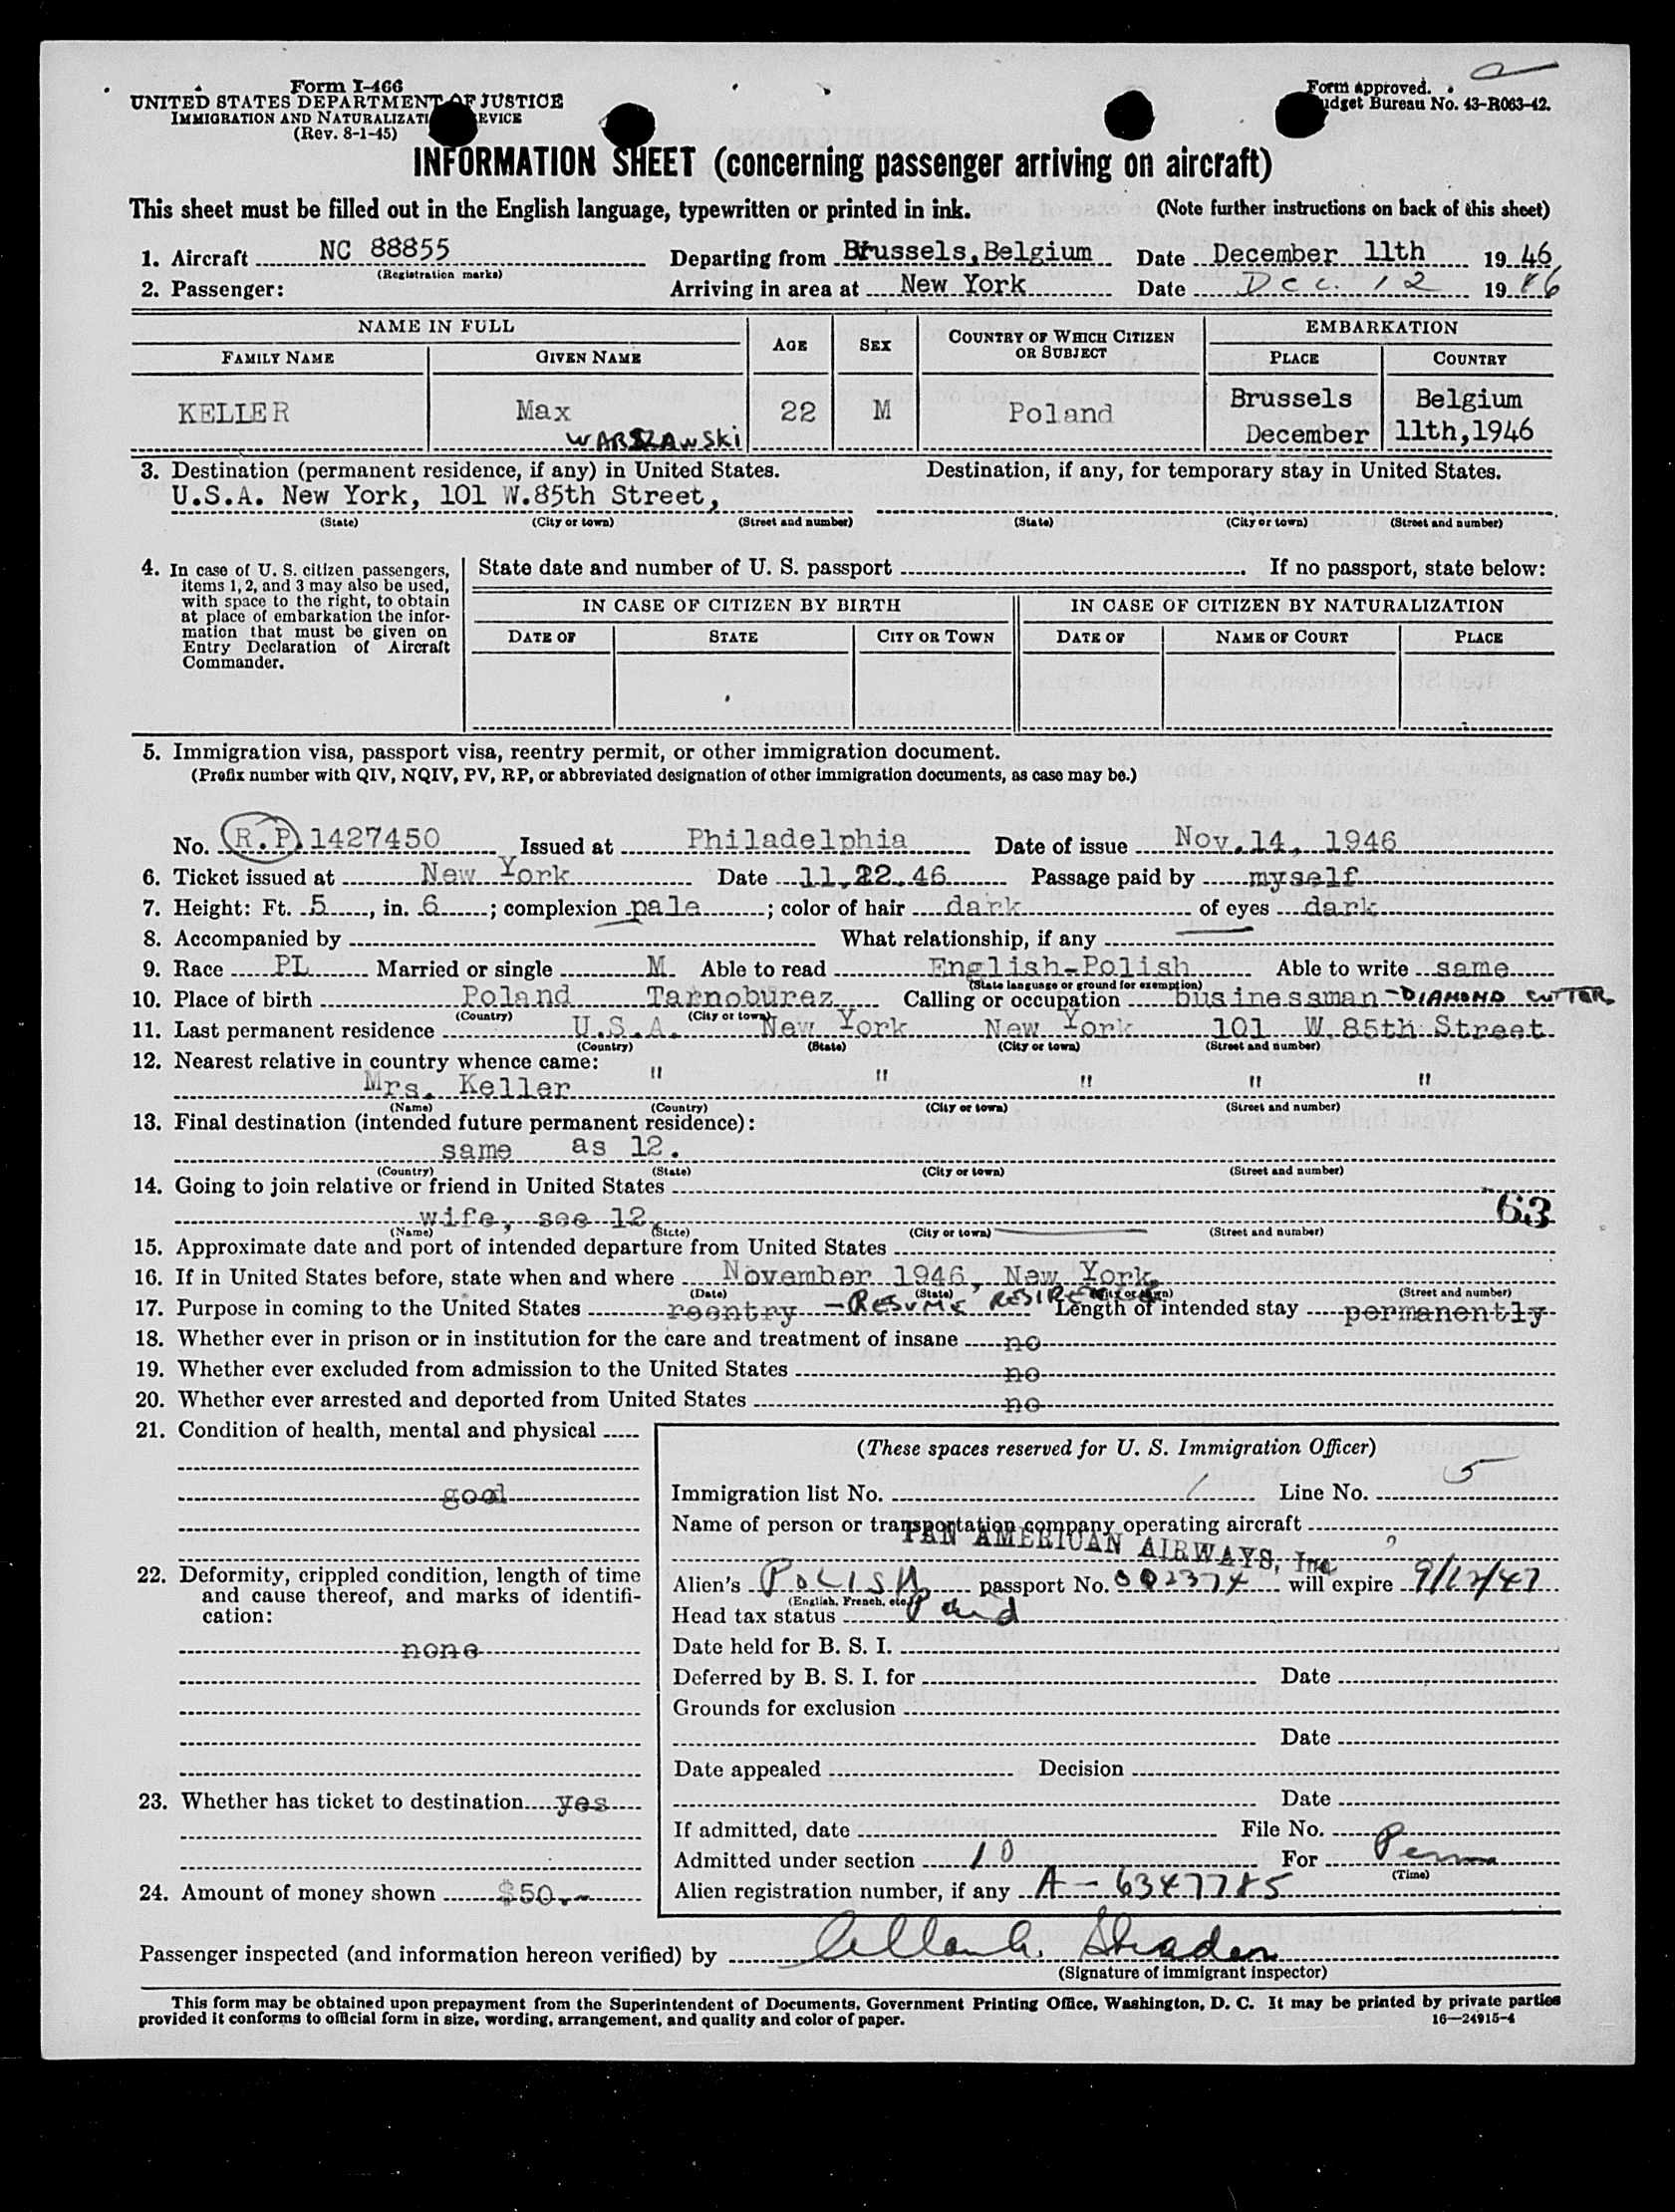 Form I-466
UNITED STATES DEPARTMENT OF JUSTICE
IMMIGRATION AND NATURALIZATI EVICE
(Rev. 8-1-45)
Form approved.
udget Bureau No. 43-R063-42.
INFORMATION SHEET (concerning passenger arriving on aircraft)
This sheet must be filled out in the English language, typewritten or printed in ink. (Note further instructions on back of this sheet)
1. Aircraft NC 88855 Departing from Brussels, Belgium Date December 11th 19 46
(Registration marks)
2. Passenger: Arriving in area at New York Date Dec. 12 19 46
NAME IN FULL AGE SEX COUNTRY OF WHICH CITIZEN OR SUBJECT EMBARKATION
FAMILY NAME GIVEN NAME PLACE COUNTRY
KELLER Max 22 M Poland Brussels Belgium
WARSZAWSKI December 11th, 1946
3. Destination (permanent residence, if any) in United States. Destination, if any, for temporary stay in United States.
U.S.A. New York, 101 W.85th Street,
(State) (City or town) (Street and number) (State) (City or town) (Street and number)
4. In case of U. S. citizen passengers, items 1, 2, and 3 may also be used, with space to the right, to obtain at place of embarkation the information that must be given on Entry Declaration of Aircraft Commander.
State date and number of U. S. passport If no passport, state below:
IN CASE OF CITIZEN BY BIRTH IN CASE OF CITIZEN BY NATURALIZATION
DATE OF STATE CITY OR TOWN DATE OF NAME OF COURT PLACE
5. Immigration visa, passport visa, reentry permit, or other immigration document.
(Prefix number with QIV, NQIV, PV, RP, or abbreviated designation of other immigration documents, as case may be.)
No. R.P. 1427450 Issued at Philadelphia Date of issue Nov. 14, 1946
6. Ticket issued at New York Date 11.22.46 Passage paid by myself
7. Height: Ft. 5, in. 6; complexion pale; color of hair dark of eyes dark
8. Accompanied by What relationship, if any
9. Race PL Married or single M. Able to read English-Polish Able to write same
(State language or ground for exemption)
10. Place of birth Poland Tarnoburez Calling or occupation businessman - DIAMOND CUTTER
(Country) (City or town)
11. Last permanent residence U.S.A. New York New York 101 W 85th Street
(Country) (State) (City or town) (Street and number)
12. Nearest relative in country whence came:
Mrs. Keller " " " " "
(Name) (Country) (City or town) (Street and number)
13. Final destination (intended future permanent residence):
same as 12.
(Country) (State) (City or town) (Street and number)
14. Going to join relative or friend in United States
wife, see 12. 63
(Name) (State) (City or town) (Street and number)
15. Approximate date and port of intended departure from United States
16. If in United States before, state when and where November 1946, New York.
(Date) (State) (City or town) (Street and number)
17. Purpose in coming to the United States reentry - RESUME Length of intended stay permanently
18. Whether ever in prison or in institution for the care and treatment of insane no
19. Whether ever excluded from admission to the United States no
20. Whether ever arrested and deported from United States no
21. Condition of health, mental and physical
good
22. Deformity, crippled condition, length of time and cause thereof, and marks of identification:
none
23. Whether has ticket to destination yes
24. Amount of money shown $50.-
(These spaces reserved for U. S. Immigration Officer)
Immigration list No. 1 Line No. 5
Name of person or transportation company operating aircraft
PAN AMERICAN AIRWAYS, Inc
Alien's POLISH passport No. 002374 will expire 9/12/47
(English, French, etc.)
Head tax status Paid
Date held for B. S. I.
Deferred by B. S. I. for Date
Grounds for exclusion
Date
Date appealed Decision
Date
If admitted, date File No.
Admitted under section 10 For Perm
(Time)
Alien registration number, if any A-6347785
Passenger inspected (and information hereon verified) by
(Signature of immigrant inspector)
This form may be obtained upon prepayment from the Superintendent of Documents, Government Printing Office, Washington, D. C. It may be printed by private parties
provided it conforms to official form in size, wording, arrangement, and quality and color of paper. 16—24915-4